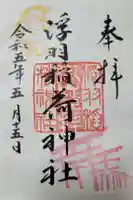 奉拝
浮羽稲荷神社
令和五年五月十五日